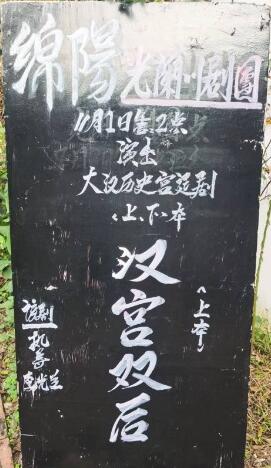 绵陽光蘭川剧團
11月1日善2点
演出
大汉历史宫廷剧
《上、下》本
汉宫双后
《上本》
该剧